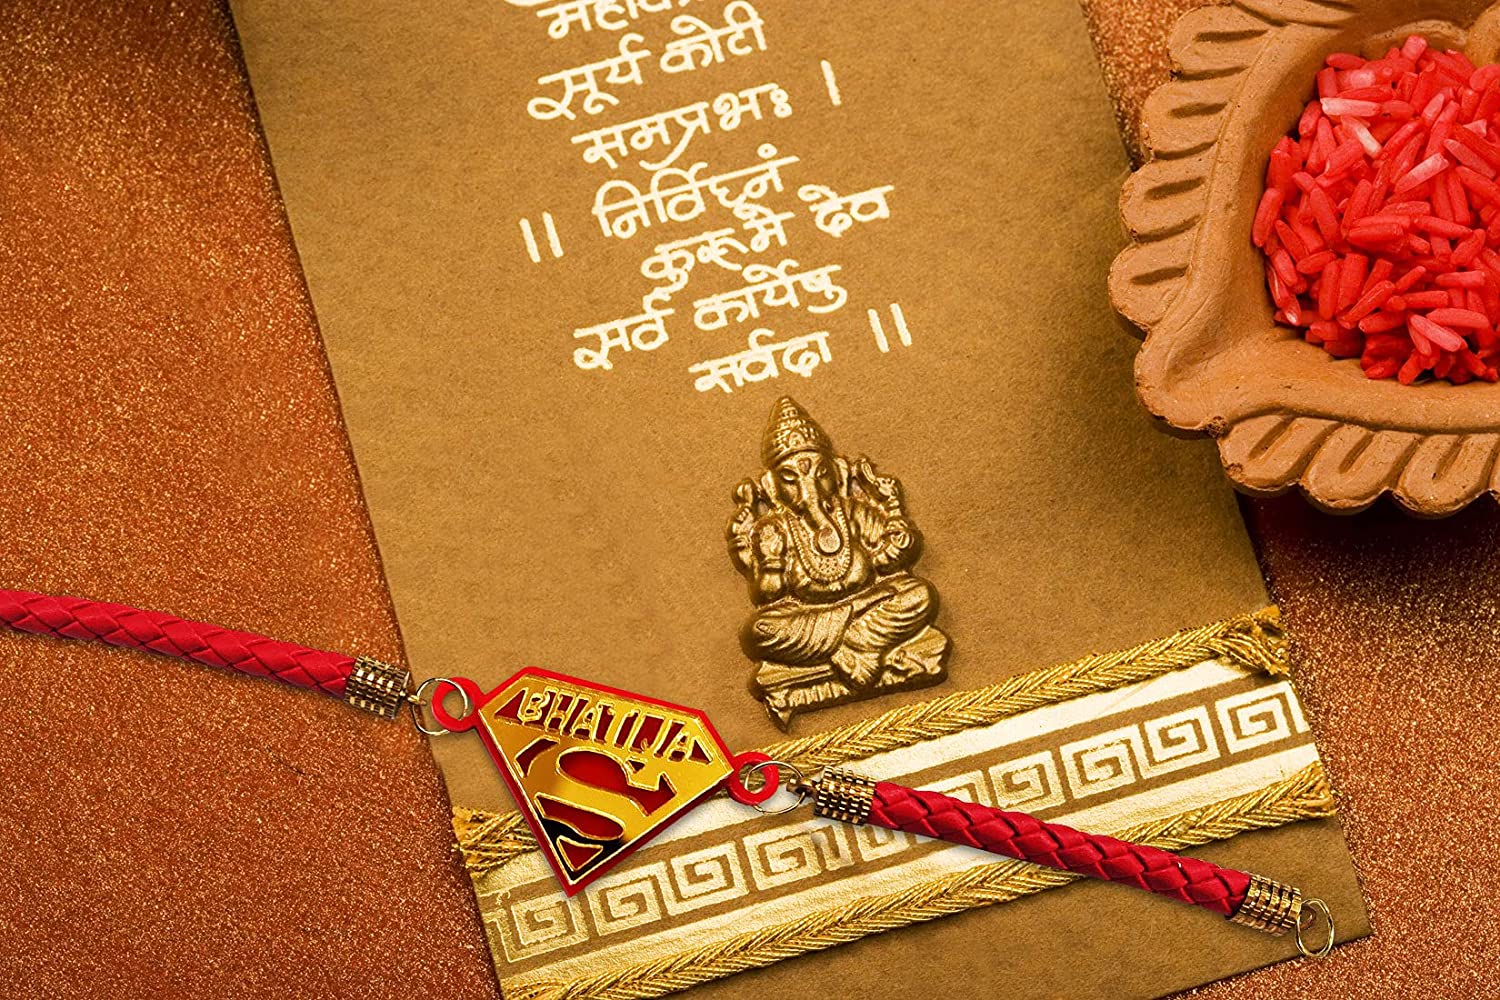 सूर्य कोटी
समप्रभः ।
॥ निर्विघ्नं
कुरूमे देव
सर्व कार्येषु
सर्वदा ॥
BHATIJA
S